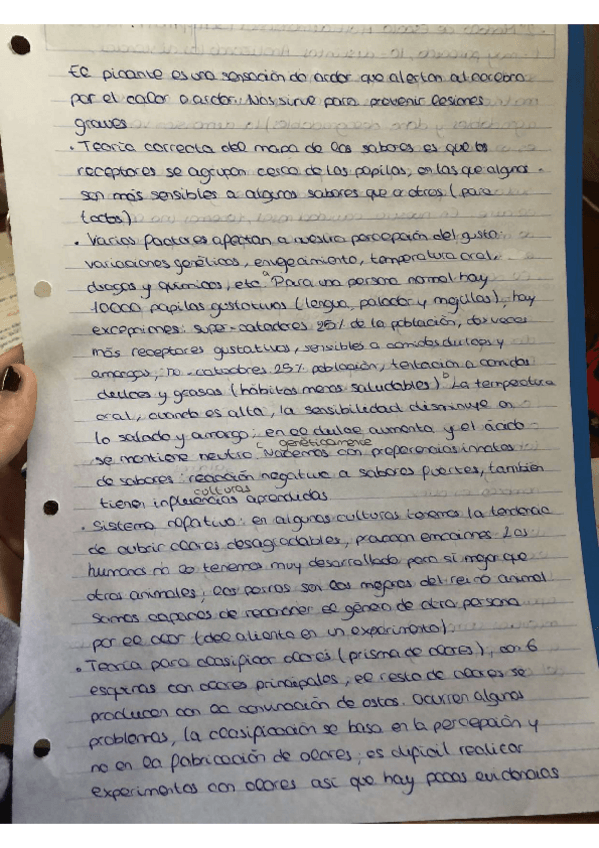 El picante es una sensación de ardor que alertan al cerebro
por el calor o ardor. Nos sirve para prevenir lesiones
graves
· Teoría correcta del mapa de los sabores es que los
receptores se agrupan cerca de las papilas, en las que algunas
son más sensibles a algunos sabores que a otros (para
todos)
· Varios factores afectan a nuestra percepción del gusto:
variaciones genéticas, envejecimiento, temperatura oral,
drogas y químicos, etc. a Para una persona normal hay
10000 papilas gustativas (lengua, paladar y mejillas), hay
excepciones: super-catadores 25% de la población, dos veces
más receptores gustativos, sensibles a comidas dulces y
amargas; no-catadores 25% población, tentación a comidas
dulces y grasas (hábitos menos saludables) b La temperatura
oral, cuando es alta, la sensibilidad disminuye en
lo salado y amargo; en el dulce aumenta y el ácido
se mantiene neutro. c Nacemos genéticamente con preferencias innatas
de sabores: reacción negativa a sabores fuertes, también
tienen influencias culturas aprendidas
· Sistema olfativo: en algunas culturas tenemos la tendencia
de cubrir olores desagradables, evocan emociones. Los
humanos no lo tenemos muy desarrollado pero sí mejor que
otros animales; los perros son los mejores del reino animal
Somos capaces de reconocer el género de otra persona
por el olor (del aliento en un experimento)
· Teoría para clasificar olores (prisma de olores), con 6
esquinas con olores principales, el resto de olores se
producen con la combinación de estos. Ocurren algunos
problemas, la clasificación se basa en la percepción y
no en la fabricación de olores; es difícil realizar
experimentos con olores así que hay pocas evidencias